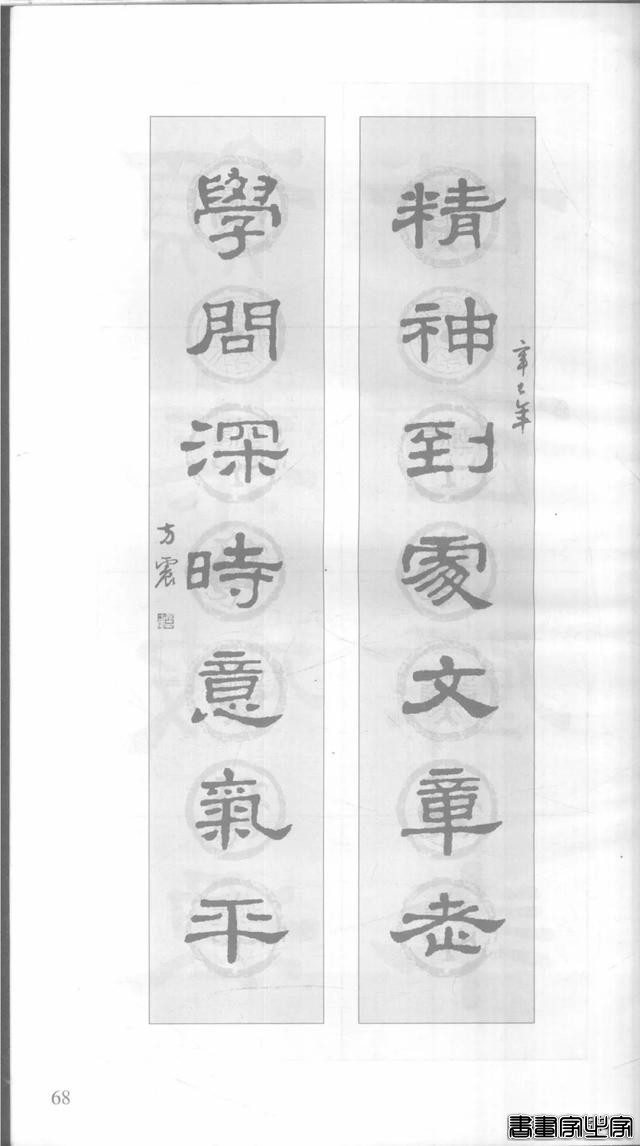 精神到處文章老
辛巳年
學問深時意氣平
方震
68
書畫字中字